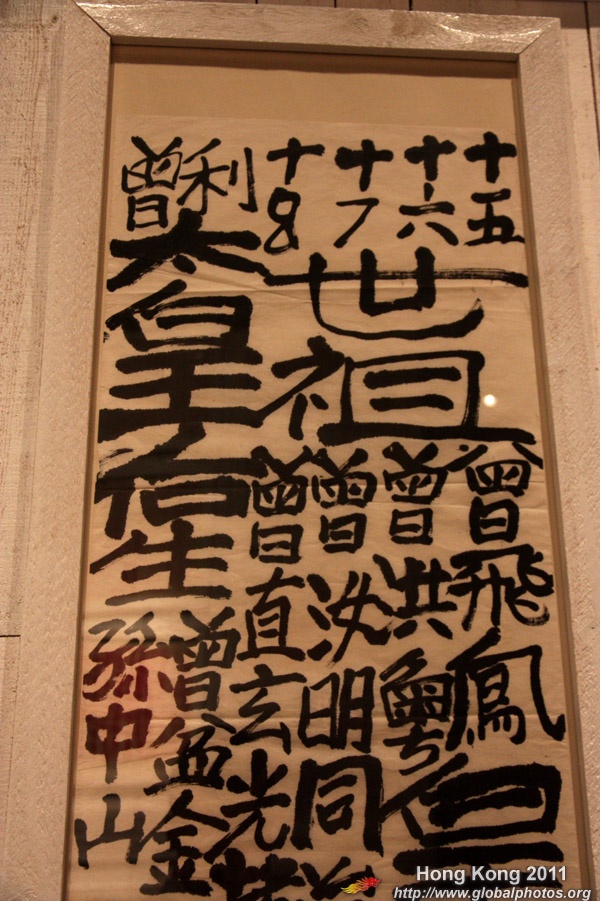 十五
十六
十7
十8
世祖
曾飛鳳
曾洪粵
曾汝明同
曾直玄光
利
曾
太皇后生
曾孟金
孫中山
Hong Kong 2011
http://www.globalphotos.org